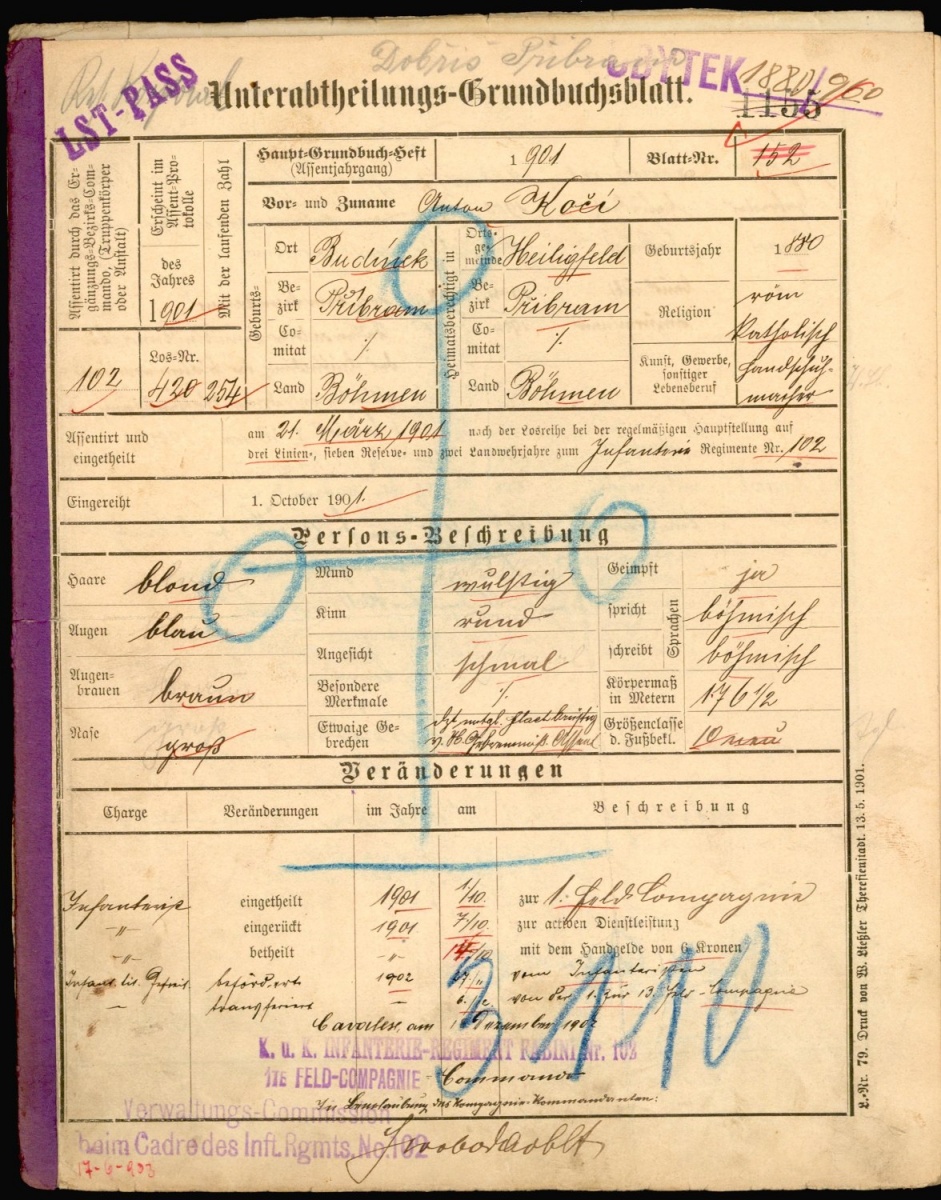 Dobřis Přibram
LST-PASS
ÚBYTEK 1880/960
Unterabtheilungs-Grundbuchsblatt.
1155
Assentirt durch das Ergänzungs-Bezirks-Commando, (Truppenkörper oder Anstalt)
102
Erscheint im Assent-Protokolle
des Jahres
1901
Los-Nr.
420
Mit der laufenden Zahl
254
Haupt-Grundbuch-Heft
(Assentjahrgang)
1901
Blatt-Nr.
152
Vor- und Zuname Anton Kočí
Geburts-
Ort Budínek
Bezirk Přibram
Comitat ·/.
Land Böhmen
Heimatsberechtigt in
Ortsgemeinde Heiligfeld
Bezirk Přibram
Comitat ·/.
Land Böhmen
Geburtsjahr 1880
Religion röm katholisch
Kunst, Gewerbe, sonstiger Lebensberuf
Handschuhmacher
Assentirt und eingetheilt
am 21. März 1901 nach der Losreihe bei der regelmäßigen Hauptstellung auf
drei Linien-, sieben Reserve- und zwei Landwehrjahre zum Infanterie Regimente Nr. 102
Eingereiht 1. October 1901.
Persons-Beschreibung
Haare blond
Augen blau
Augenbrauen braun
Nase groß
Mund wulstig
Kinn rund
Angesicht schmal
Besondere Merkmale ·/.
Etwaige Gebrechen
Geimpft ja
Sprachen
spricht böhmisch
schreibt böhmisch
Körpermaß in Metern 1·76 1/2
Größenclasse d. Fußbekl. 10
Veränderungen
Charge Veränderungen im Jahre am Beschreibung
Infanterist eingetheilt 1901 1/10. zur 1. Feld-Compagnie
-"- eingerückt 1901 7/10. zur activen Dienstleistung
-"- betheilt -"- 14/10 mit dem Handgelde von 6 Kronen
Infant. tit. Gefreit. befördert 1902 vom Infanteristen
transferirt von der 1. zur 13. Feld-Compagnie
Cavalese, am 1 Dezember 1902
K. u. K. INFANTERIE-REGIMENT Nr. 102
1TE FELD-COMPAGNIE Commando
In Beurlaubung des Kompagnie-Kommandanten:
Verwaltungs-Commission
beim Cadre des Inft. Rgmts. No. 102
Svoboda Oblt
17-6-903
3110
L.-Nr. 79. Druck von W. Ließler Theresienstadt. 13. 5. 1901.